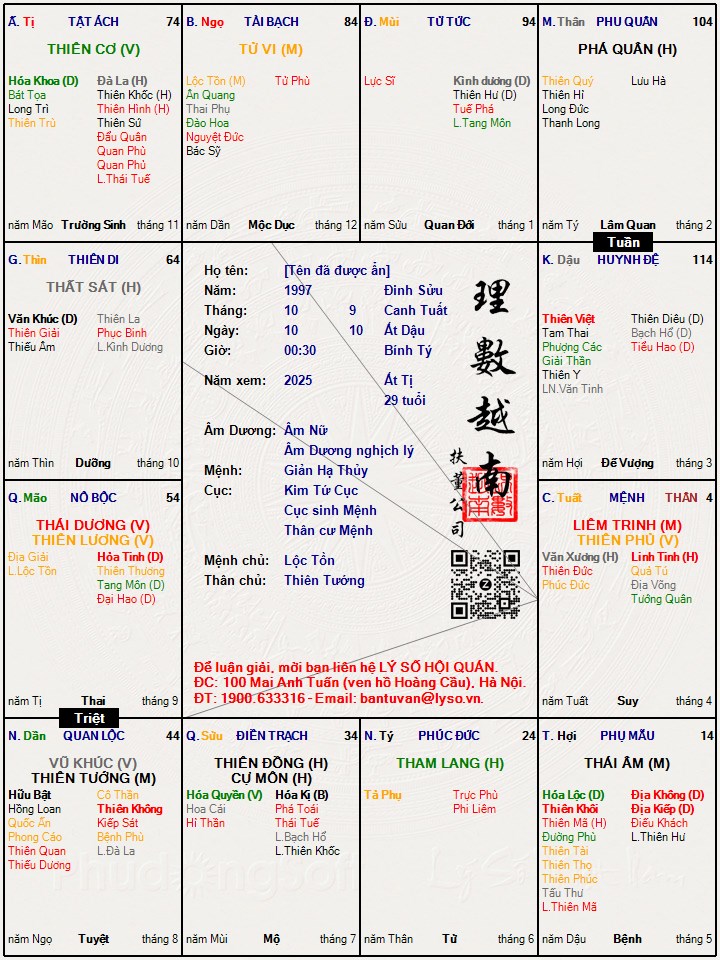 Ấ. Tị TẬT ÁCH 74
THIÊN CƠ (V)
Hóa Khoa (D) Đà La (H)
Bát Tọa Thiên Khốc (H)
Long Trì Thiên Hình (H)
Thiên Trù Thiên Sứ
Đẩu Quân
Quan Phù
Quan Phủ
L.Thái Tuế
năm Mão Trường Sinh tháng 11
B. Ngọ TÀI BẠCH 84
TỬ VI (M)
Lộc Tồn (M) Tử Phù
Ân Quang
Thai Phụ
Đào Hoa
Nguyệt Đức
Bác Sỹ
năm Dần Mộc Dục tháng 12
Đ. Mùi TỬ TỨC 94
Lực Sĩ Kình dương (D)
Thiên Hư (D)
Tuế Phá
L.Tang Môn
năm Sửu Quan Đới tháng 1
M. Thân PHU QUÂN 104
PHÁ QUÂN (H)
Thiên Quý Lưu Hà
Thiên Hỉ
Long Đức
Thanh Long
năm Tý Lâm Quan tháng 2
Tuần
G. Thìn THIÊN DI 64
THẤT SÁT (H)
Văn Khúc (D) Thiên La
Thiên Giải Phục Binh
Thiếu Âm L.Kình Dương
năm Thìn Dưỡng tháng 10
Họ tên: [Tên đã được ẩn]
Năm: 1997 Đinh Sửu
Tháng: 10 9 Canh Tuất
Ngày: 10 10 Ất Dậu
Giờ: 00:30 Bính Tý
Năm xem: 2025 Ất Tị
29 tuổi
Âm Dương: Âm Nữ
Âm Dương nghịch lý
Mệnh: Giản Hạ Thủy
Cục: Kim Tứ Cục
Cục sinh Mệnh
Thân cư Mệnh
Mệnh chủ: Lộc Tồn
Thân chủ: Thiên Tướng
理
數
越
南
扶
董
公
司
Để luận giải, mời bạn liên hệ LÝ SỐ HỘI QUÁN.
ĐC: 100 Mai Anh Tuấn (ven hồ Hoàng Cầu), Hà Nội.
ĐT: 1900.633316 - Email: bantuvan@lyso.vn.
K. Dậu HUYNH ĐỆ 114
Thiên Việt Thiên Diêu (D)
Tam Thai Bạch Hổ (D)
Phượng Các Tiểu Hao (D)
Giải Thần
Thiên Y
LN.Văn Tinh
năm Hợi Đế Vượng tháng 3
Q. Mão NÔ BỘC 54
THÁI DƯƠNG (V)
THIÊN LƯƠNG (V)
Địa Giải Hỏa Tinh (D)
L.Lộc Tồn Thiên Thương
Tang Môn (D)
Đại Hao (D)
năm Tị Thai tháng 9
Triệt
C. Tuất MỆNH THÂN 4
LIÊM TRINH (M)
THIÊN PHỦ (V)
Văn Xương (H) Linh Tinh (H)
Thiên Đức Quả Tú
Phúc Đức Địa Võng
Tướng Quân
năm Tuất Suy tháng 4
N. Dần QUAN LỘC 44
VŨ KHÚC (V)
THIÊN TƯỚNG (M)
Hữu Bật Cô Thần
Hồng Loan Thiên Không
Quốc Ấn Kiếp Sát
Phong Cáo Bệnh Phù
Thiên Quan L.Đà La
Thiếu Dương
năm Ngọ Tuyệt tháng 8
Q. Sửu ĐIỀN TRẠCH 34
THIÊN ĐỒNG (H)
CỰ MÔN (H)
Hóa Quyền (V) Hóa Kị (B)
Hoa Cái Phá Toái
Hỉ Thần Thái Tuế
L.Bạch Hổ
L.Thiên Khốc
năm Mùi Mộ tháng 7
N. Tý PHÚC ĐỨC 24
THAM LANG (H)
Tả Phụ Trực Phù
Phi Liêm
năm Thân Tử tháng 6
T. Hợi PHỤ MẪU 14
THÁI ÂM (M)
Hóa Lộc (D) Địa Không (D)
Thiên Khôi Địa Kiếp (D)
Thiên Mã (H) Điếu Khách
Đường Phù L.Thiên Hư
Thiên Tài
Thiên Thọ
Thiên Phúc
Tấu Thư
L.Thiên Mã
năm Dậu Bệnh tháng 5